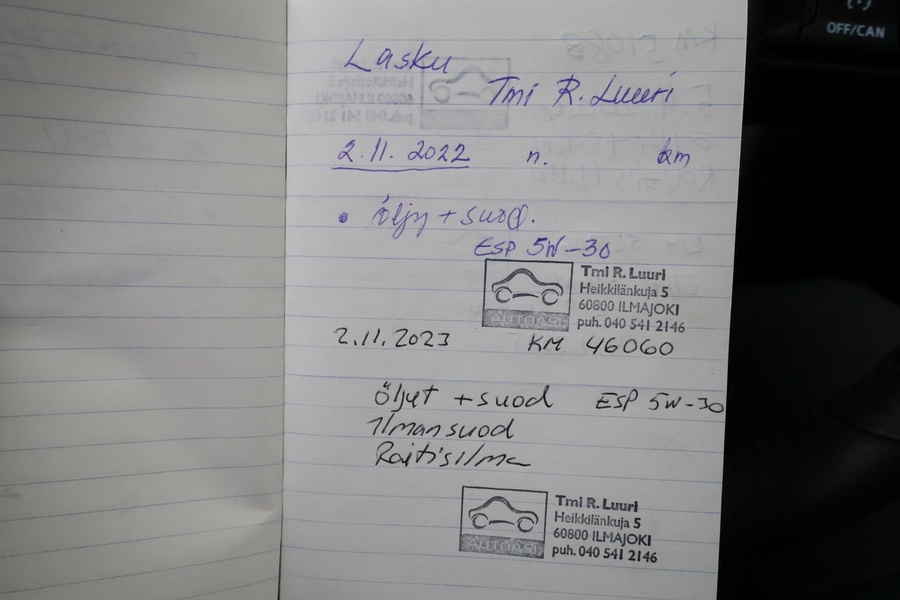 Lasku
Tmi R. Luuri
2.11. 2022 n. km
• öljy + suod.
ESP 5W-30
Tmi R. Luuri
Heikkilänkuja 5
60800 ILMAJOKI
puh. 040 541 2146
AUTOASI
2.11.2023 KM 46060
öljyt + suod ESP 5W-30
Ilmansuod
Raitisilma
Tmi R. Luuri
Heikkilänkuja 5
60800 ILMAJOKI
puh. 040 541 2146
AUTOASI
OFF/CAN